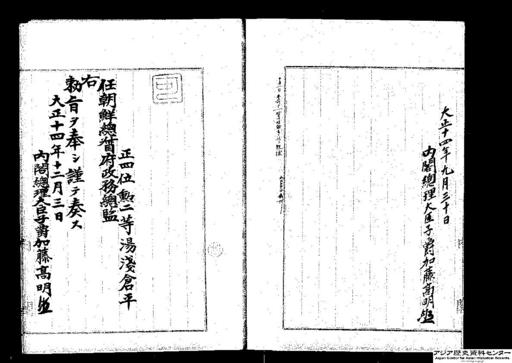 大正十四年九月三十日
内閣總理大臣子爵加藤高明
正四位勲二等湯淺倉平
任朝鮮總督府政務總監
右
勅旨ヲ奉シ謹テ奏ス
大正十四年十二月三日
内閣總理大臣子爵加藤高明
アジア歴史資料センター
Japan Center for Asian Historical Records